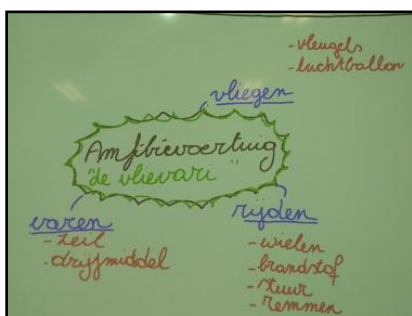 - vleugels
- luchtballon
vliegen
Amfibievoertuig
"de vlievari"
varen
- zeil
- drijfmiddel
rijden
- wielen
- brandstof
- stuur
- remmen